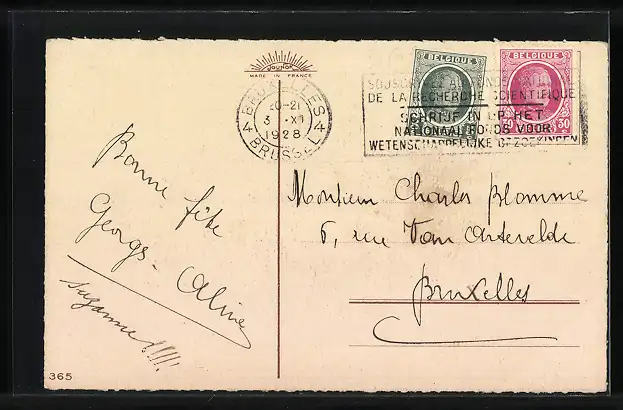 JOUNOK
MADE IN FRANCE
BELGIQUE
BELGIQUE
30
BRUXELLES
20-21
3 XI
1928
4 4
BRUSSEL
SOUSCRIVEZ AU FONDS
DE LA RECHERCHE SCIENTIFIQUE
SCHRIJF IN OP HET
NATIONAAL FONDS VOOR
WETENSCHAPPELIJKE OPZOEKINGEN
Bonne fête
Georges - Aline
Suzanne!!!!
Monsieur Charles Blomme
6, rue Van Artevelde
Bruxelles
365